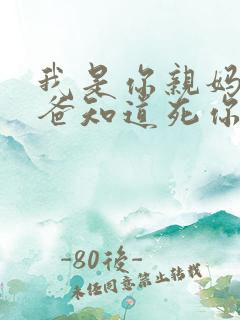 我是你親媽
爸知道死你
-80後-
未经同意禁止转载